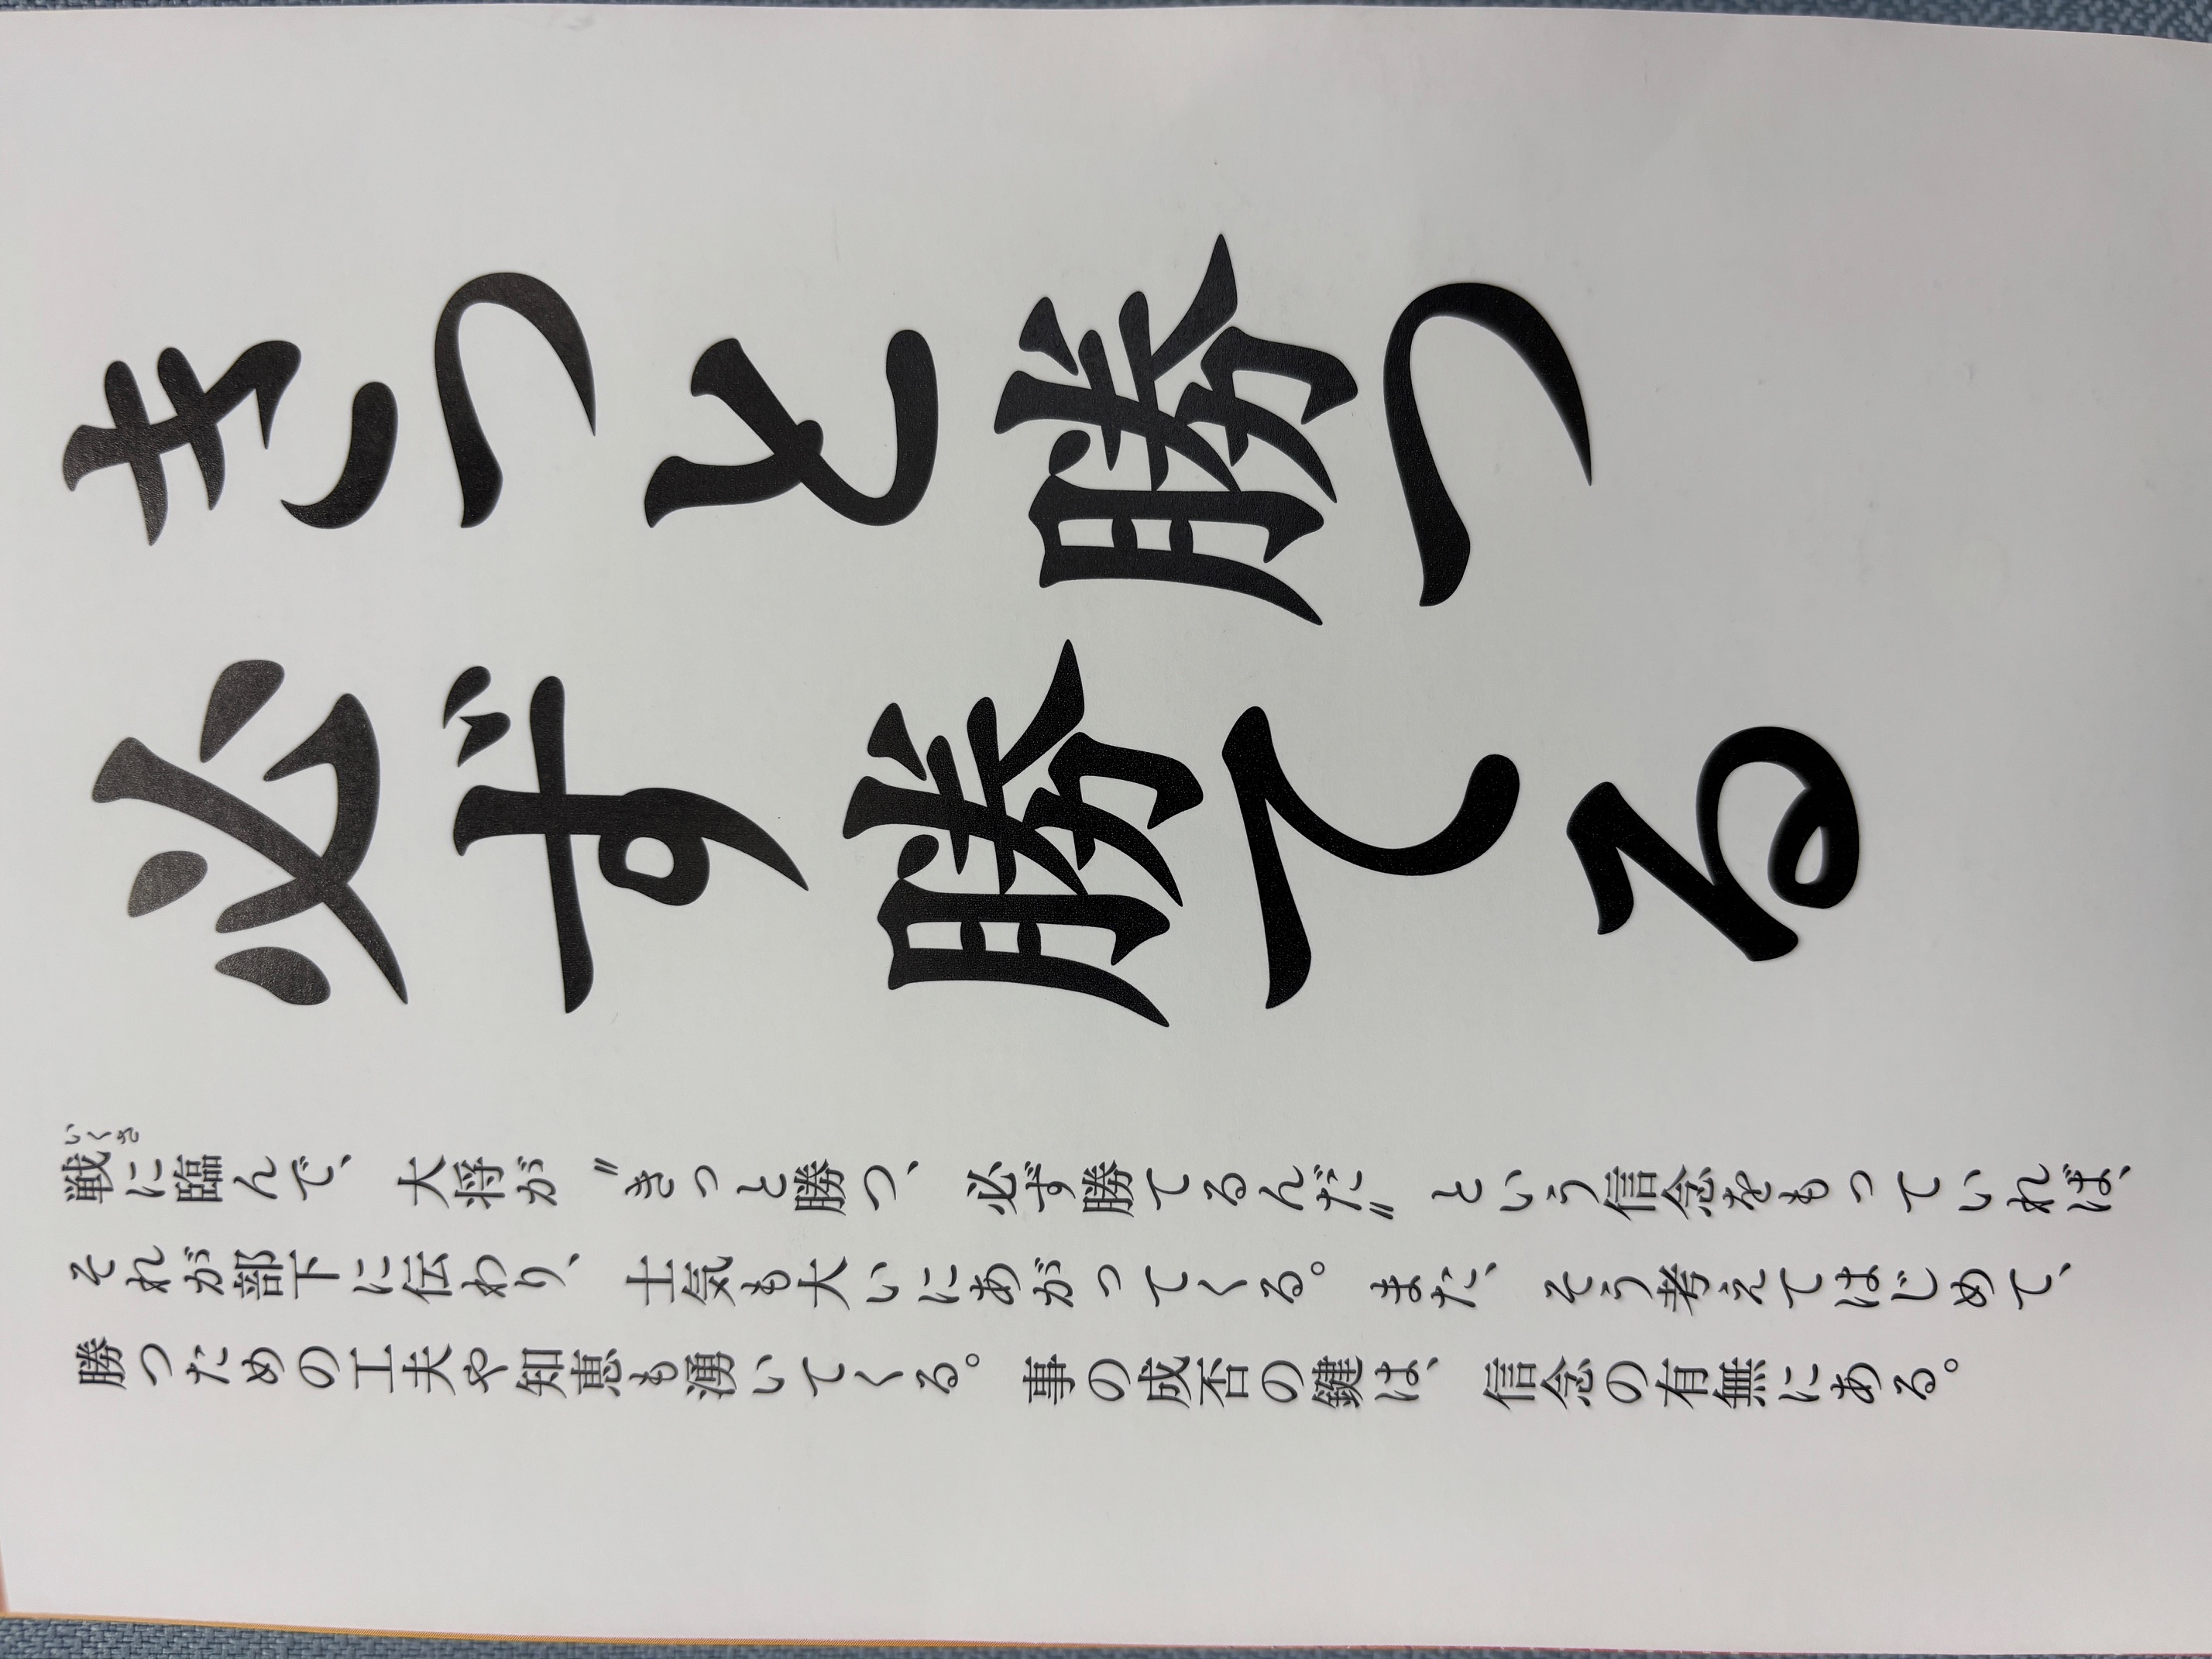 きっと勝つ
必ず勝てる
いくさ
戦に臨んで、大将が〝きっと勝つ、必ず勝てるんだ〟という信念をもっていれば、
それが部下に伝わり、士気も大いにあがってくる。また、そう考えてはじめて、
勝つための工夫や知恵も湧いてくる。事の成否の鍵は、信念の有無にある。